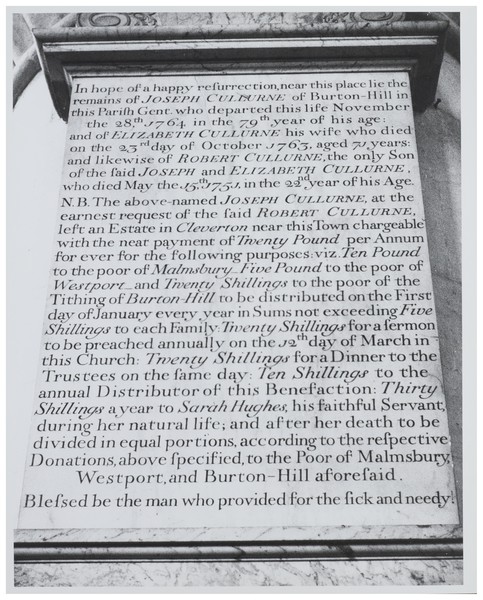 In hope of a happy reſurrection, near this place lie the
remains of JOSEPH CULLURNE of Burton-Hill in
this Pariſh Gent. who departed this life November
the 28,th 1764 in the 79th year of his age:
and of ELIZABETH CULLURNE his wife who died
on the 23rd day of October 1763, aged 71, years:
and likewise of ROBERT CULLURNE, the only Son
of the ſaid JOSEPH and ELIZABETH CULLURNE,
who died May the 15,th 1751, in the 22nd year of his Age.
N.B. The above-named JOSEPH CULLURNE, at the
earnest request of the ſaid ROBERT CULLURNE,
left an Estate in Cleverton near this Town chargeable
with the neat payment of Twenty Pound per Annum
for ever for the following purposes: viz. Ten Pound
to the poor of Malmsbury_Five Pound to the poor of
Westport_and Twenty Shillings to the poor of the
Tithing of Burton-Hill to be distributed on the First
day of January every year in Sums not exceeding Five
Shillings to each Family: Twenty Shillings for a ſermon
to be preached annually on the 12th day of March in
this Church: Twenty Shillings for a Dinner to the
Trustees on the ſame day: Ten Shillings to the
annual Distributor of this Benefaction: Thirty
Shillings a year to Sarah Hughes, his faithful Servant,
during her natural life; and after her death to be
divided in equal portions, according to the reſpective
Donations, above ſpecified, to the Poor of Malmsbury,
Westport, and Burton-Hill aforeſaid.
Bleſsed be the man who provided for the ſick and needy.